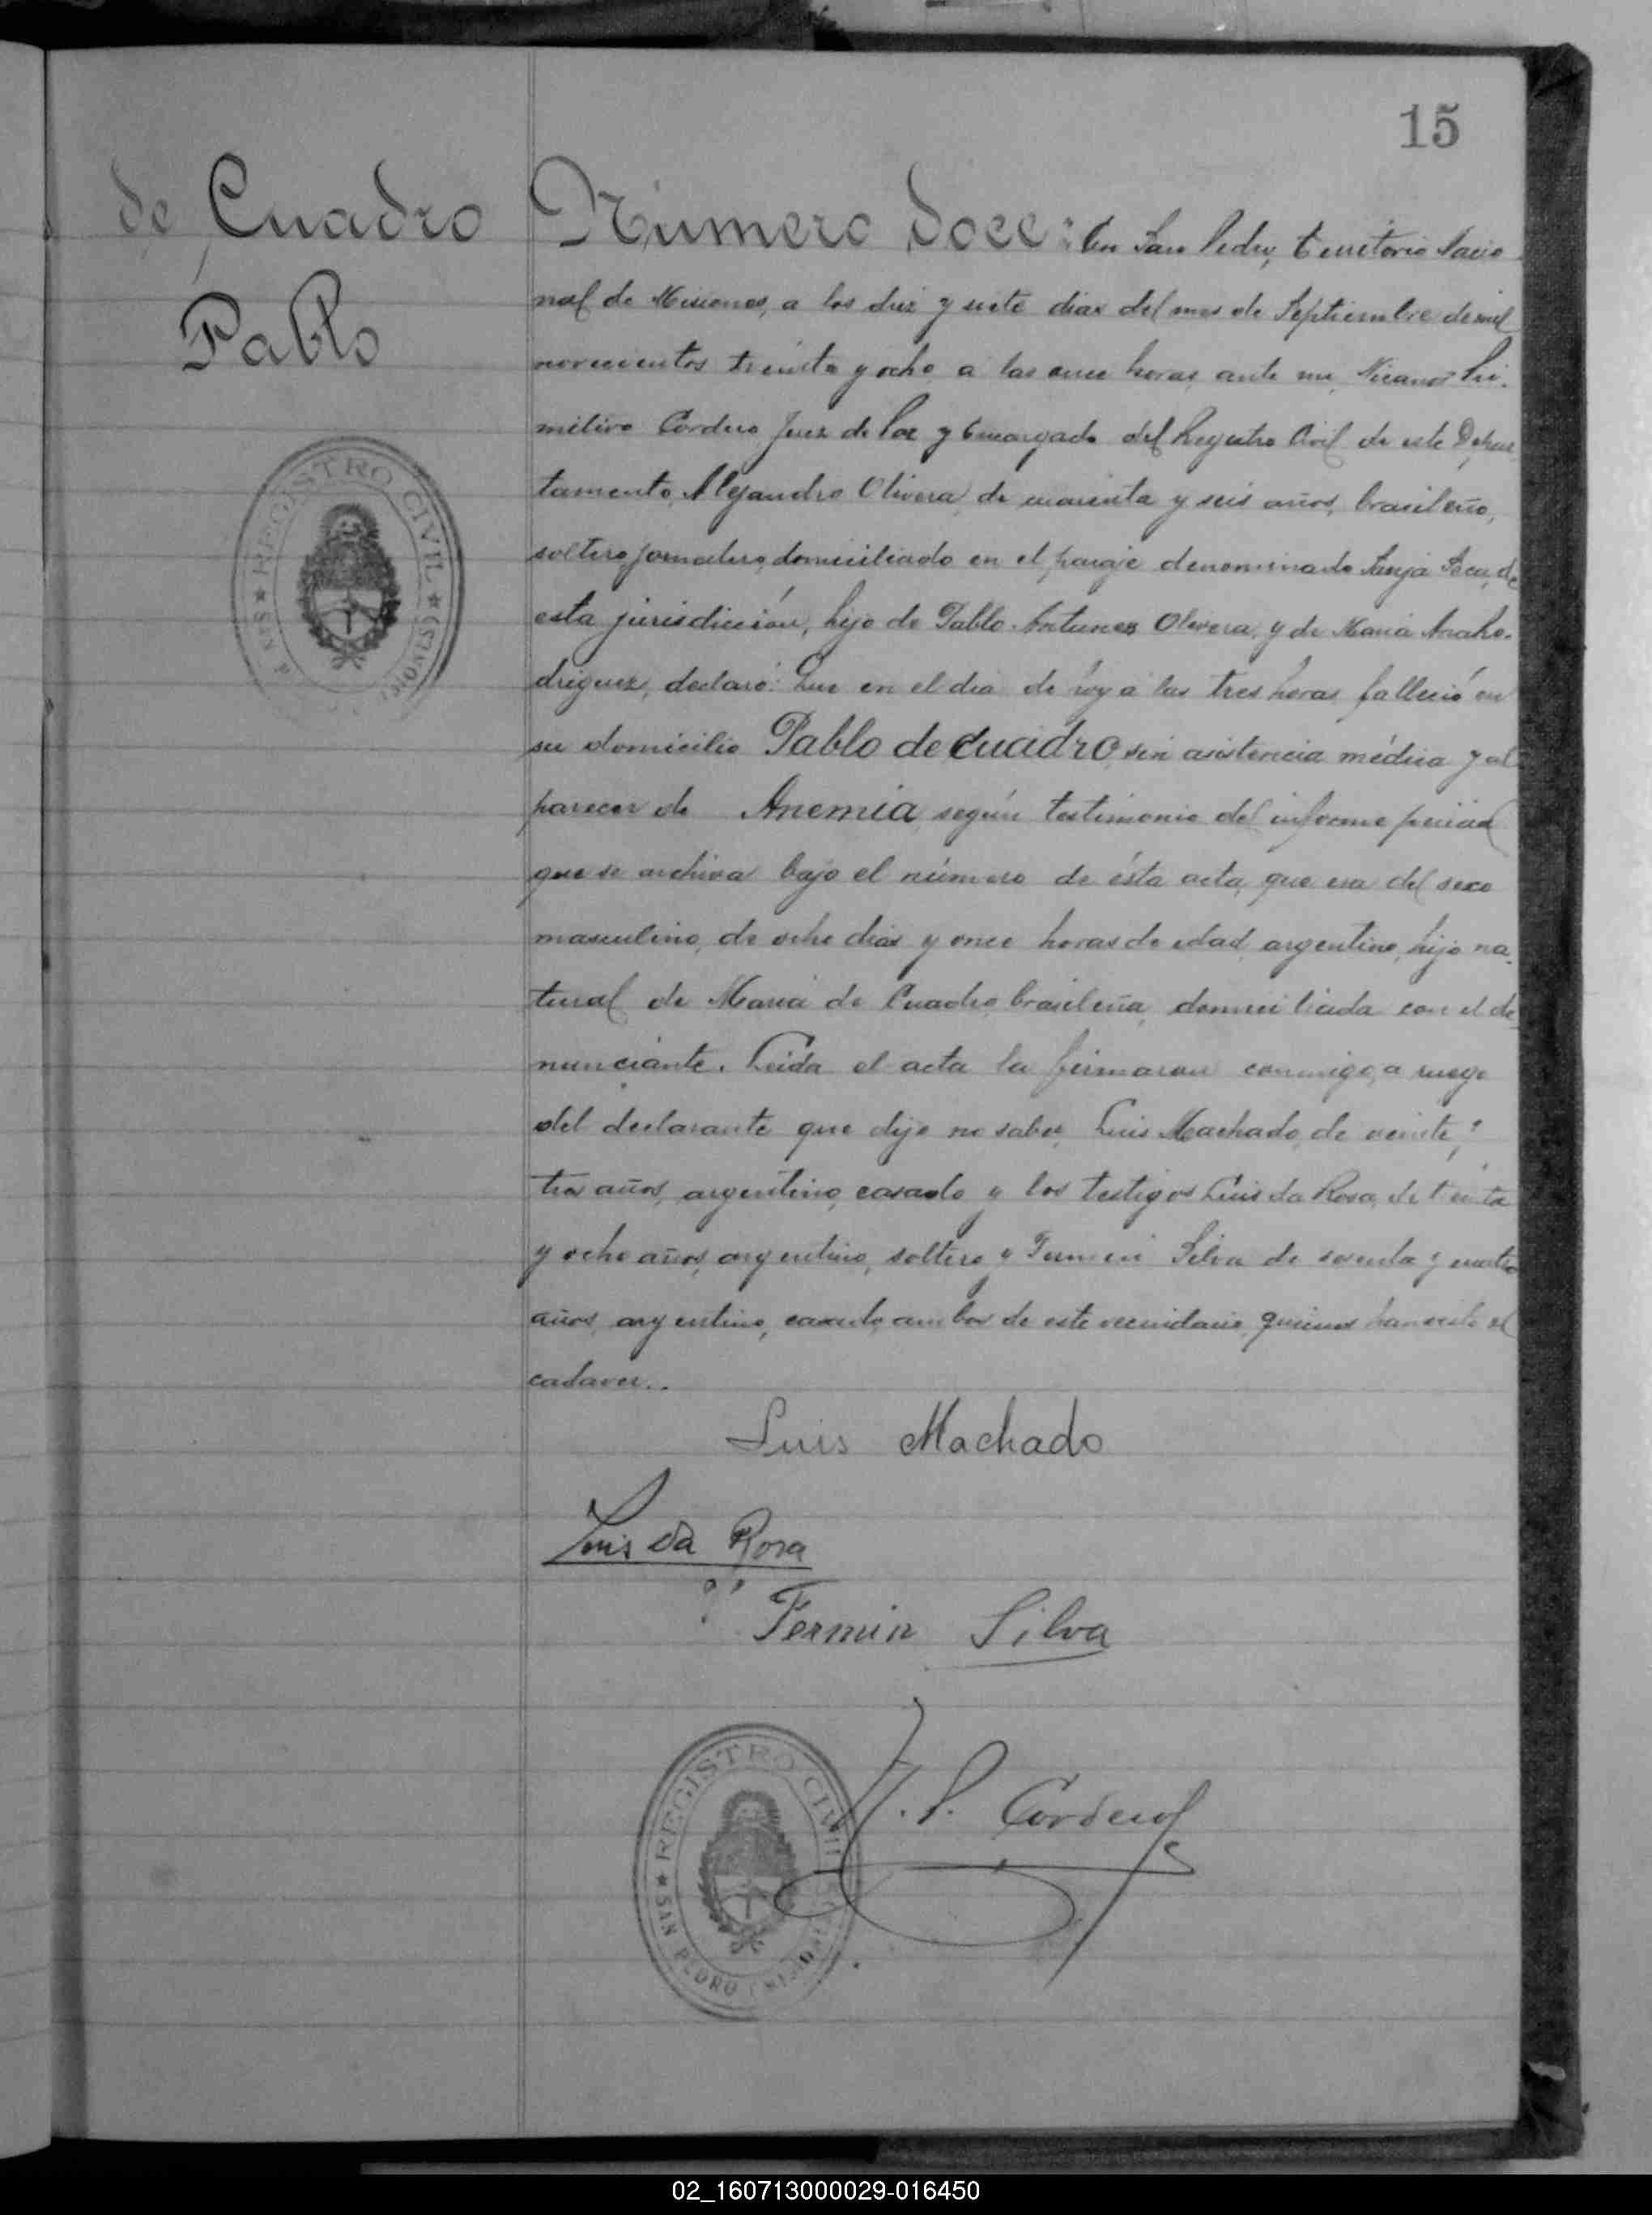 15
de Cuadro
Pablo
Número doce: En San Pedro, Territorio Nacio
nal de Misiones, a los diez y siete dias del mes de Septiembre de mil
novecientos treinta y ocho a las once horas, ante mi, Nicanor Pri-
mitivo Cordero Juez de Paz y Encargado del Registro Civil de este Depar
tamento, Alejandro Olivera, de cuarenta y seis años, brasileño,
soltero, jornalero, domiciliado en el paraje denominado Sanja Seca, de
esta jurisdicción, hijo de Pablo Antunes Olivera, y de Maria Ro-
driguez, declaró: Que en el dia de hoy a las tres horas falleció en
su domicilio Pablo de Cuadro, sin asistencia médica y al
parecer de Anemia según testimonio del informe pericial
que se archiva bajo el número de ésta acta, que era del sexo
masculino, de ocho dias y once horas de edad, argentino, hijo na-
tural de Maria de Cuadro, brasileña, domiciliada con el de
nunciante. Leida el acta la firmaron conmigo, a ruego
del declarante que dijo no saber, Luis Machado, de veinte y
tres años, argentino, casado y los testigos Luis da Rosa, de treinta
y ocho años, argentino, soltero y Fermin Silva de sesenta y cuatro
años, argentino, casado, ambos de este vecindario, quienes han visto el
cadaver..
Luis Machado
Luis da Rosa
Fermin Silva
N. P. Cordero
REGISTRO CIVIL
(MISIONES)
REGISTRO CIVIL
SAN PEDRO (MISIONES)
02_160713000029-016450